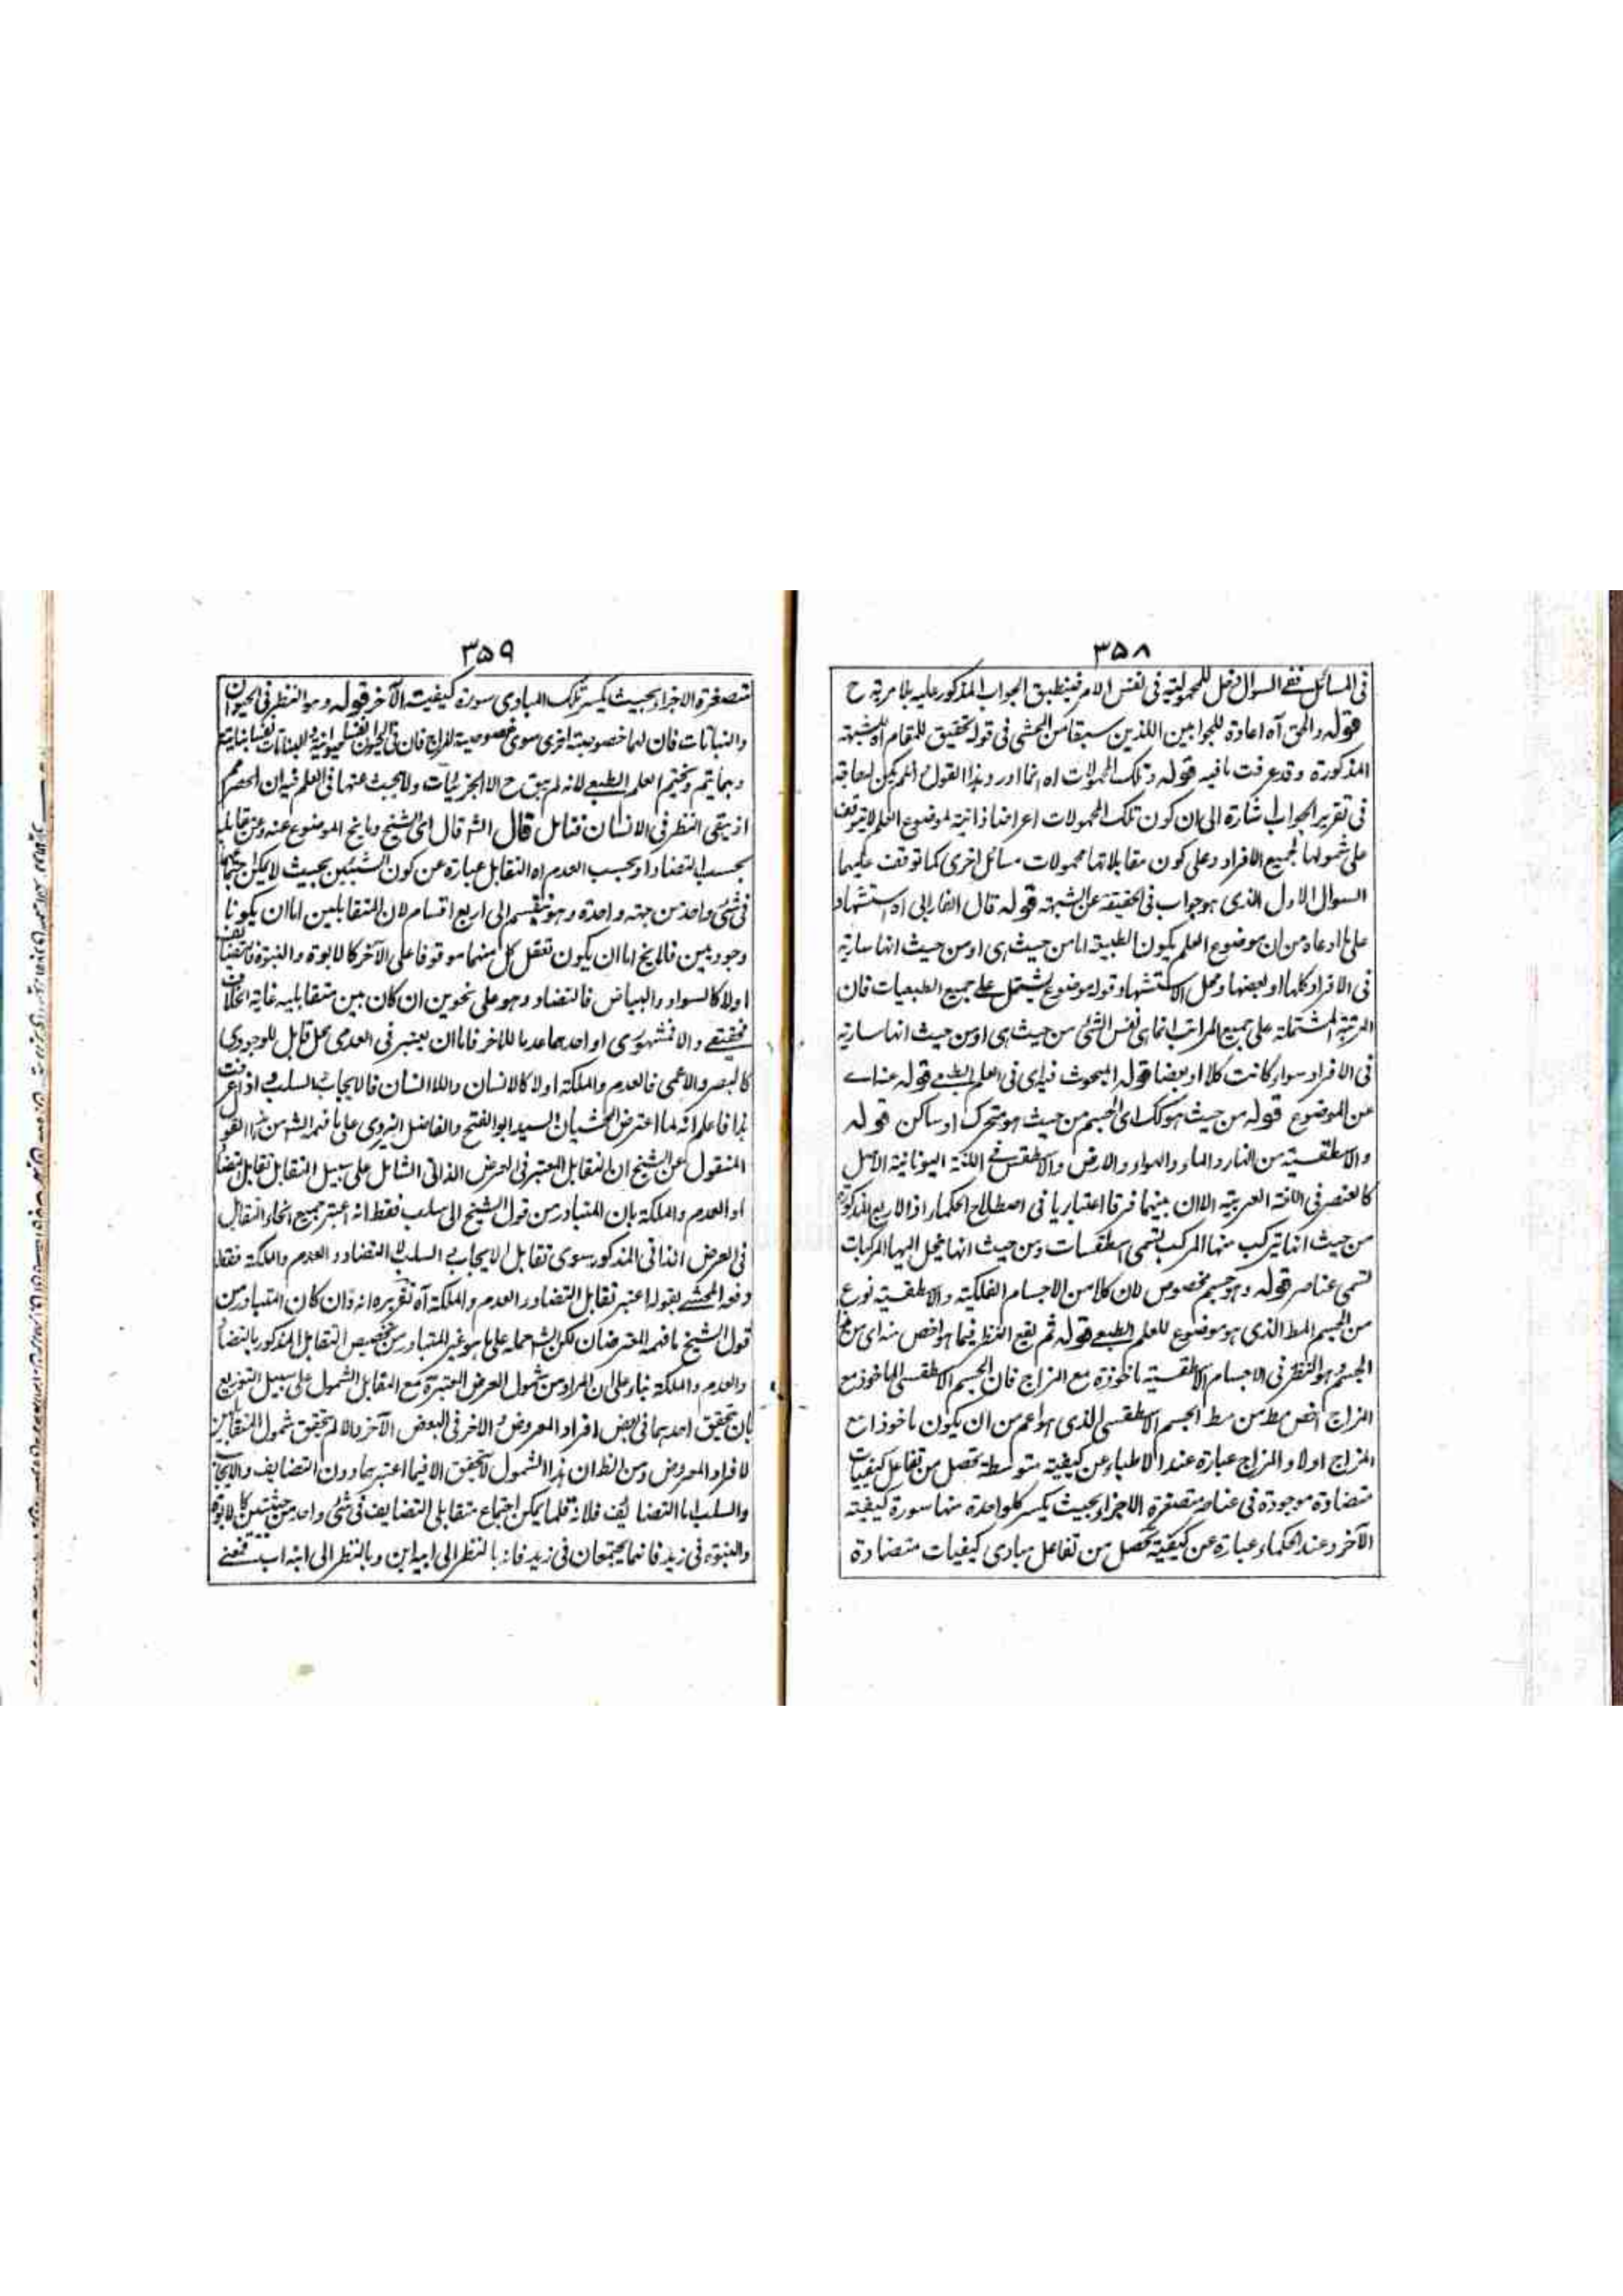 ٣٥٨
فى المسائل ففى السوال دخل للمحمولية فى نفس الامر فينطبق الجواب المذكور عليه بلا مرية ح
قوله والحق آه اعادة للجوابين اللذين سبقا من المحشى فى قوله تحقيق للمقام اه للشبهة
المذكورة وقد عرفت ما فيه قوله وتلك المحمولات اه انما اورد هذا القول
فى تقرير الجواب اشارة الى ان كون تلك المحمولات اعراضا ذاتية لموضوع العلم لا يتوقف
على شمولها لجميع الافراد وعلى كون مقابلاتها محمولات مسائل اخرى كما توقفت عليهما
السوال الاول الذى هو جواب فى الحقيقة عن الشبهة قوله قال الفارابى اه استشهاد
على ما ادعاه من ان موضوع العلم يكون الطبيعة اما من حيث هى او من حيث انها سارية
فى الافراد كلها او بعضها ومحل الاستشهاد قوله موضوع يشتمل على جميع الطبعيات فان
المرتبة المشتملة على جميع المراتب انما هى نفس الشئ من حيث هى او من حيث انها سارية
فى الافراد سواء كانت كلا او بعضا قوله المبحوث فيه اى فى العلم الطبعى قوله عنه اے
عن الموضوع قوله من حيث هو كك اى الجسم من حيث هو متحرك او ساكن قوله
والاسطقسية من النار والماء والهواء والارض والاسطقس فے اللغة اليونانية الاصل
كالعنصر فى اللغة العربية الا ان بينهما فرقا اعتباريا فى اصطلاح الحكماء اذ الاربع المذكورة
من حيث انها تتركب منها المركب تسمى اسطقسات ومن حيث انها تنحل اليها المركبات
تسمى عناصر قوله وهو جسم مخصوص لان كلا من الاجسام الفلكية والاسطقسية نوع
من الجسم المط الذى هو موضوع للعلم الطبعے قوله ثم يقع النظر فيما هو اخص منه اى من هذا
الجسم وهو النظر فى الاجسام الاسطقسية ماخوذة مع المزاج فان الجسم الاسطقسى الماخوذ مع
المزاج اخص مط من مط الجسم الاسطقسى الذى هو اعم من ان يكون ماخوذا مع
المزاج اولا والمزاج عبارة عند الاطباء عن كيفية متوسطة تحصل من تفاعل كيفيات
متضادة موجودة فى عناصر متصغرة الاجزاء بحيث يكسر كل واحدة منها سورة كيفية
الآخر وعند الحكماء عبارة عن كيفية تحصل من تفاعل مبادى كيفيات متضادة
٣٥٩
متصغرة الاجزاء بحيث يكسر تلك المبادى سورة كيفيت الآخر قوله وهو النظر فى الحيوان
والنباتات فان لهما خصوصية اخرى سوى خصوصية المزاج فان فى الحيوان نفسا حيوانية وللنباتات نفسا نباتية
وبهما يتم ويختم العلم الطبعے لانه لم يبق ح الا الجزئيات ولا يبحث عنها فى العلم فيه ان الحصر مم
اذ يبقى النظر فى الانسان فتامل قال الشه قال اى الشيخ وبا يخ الموضوع عنه وعن مقابله
بحسب التضاد او بحسب العدم اه التقابل عبارة عن كون الشيئين بحيث لا يمكن اجتماعهما
فى شئ واحد من جهة واحدة وهو ينقسم الى اربع اقسام لان المتقابلين اما ان يكونا
وجوديين فالايخ اما ان يكون تعقل كل منهما موقوفا على الآخر كالابوة والبنوة فالتضايف
اولا كالسواد والبياض فالتضاد وهو على نحوين ان كان بين متقابليه غاية الخلاف
فحقيقے والا فمشهورى او احدهما عدما للآخر فاما ان يعتبر فى العدمى محل قابل للوجودى
كالبصر والاعمى فالعدم والملكة اولا كالانسان واللاانسان فالايجاب والسلب اذا عرفت
هذا فاعلم انه لما اعترض المحشيان السيد ابو الفتح والفاضل اليزدى على ما فهمه الشه من هذا القول
المنقول عن الشيخ ان التقابل المعتبر فى العرض الذاتى الشامل على سبيل التقابل تقابل التضاد
او العدم والملكة بان المتبادر من قول الشيخ الى سلب فقط انه اعتبر جميع انحاء التقابل
فى العرض الذاتى المذكور سوى تقابل الايجاب والسلب لا التضاد والعدم والملكة فقط
دفعه المحشے بقوله اعتبر تقابل التضاد والعدم والملكة آه تقريره انه وان كان المتبادر من
قول الشيخ ما فهمه المعترضان لكن الشه حمله على ما هو غير المتبادر من تخصيص التقابل المذكور بالتضاد
والعدم والملكة بناء على ان المراد من شمول العرض المعتبرة مع المقابل الشمول على سبيل التوزيع
بان يتحقق احدهما فى بعض افراد المعروض والاخر فى البعض الآخر والا لم يتحقق شمول المتقابلين
لافراد المعروض ومن الظ ان هذا الشمول لا يتحقق الا فيما اعتبر هما دون التضايف والايجاب
والسلب اما التضايف فلانه قلما يمكن اجتماع متقابلى التضايف فى شئ واحد من حيثيتين كالابوة
والبنوة فى زيد فانهما يجتمعان فى زيد فانه بالنظر الى ابيه ابن وبالنظر الى ابنه اب فمعنے